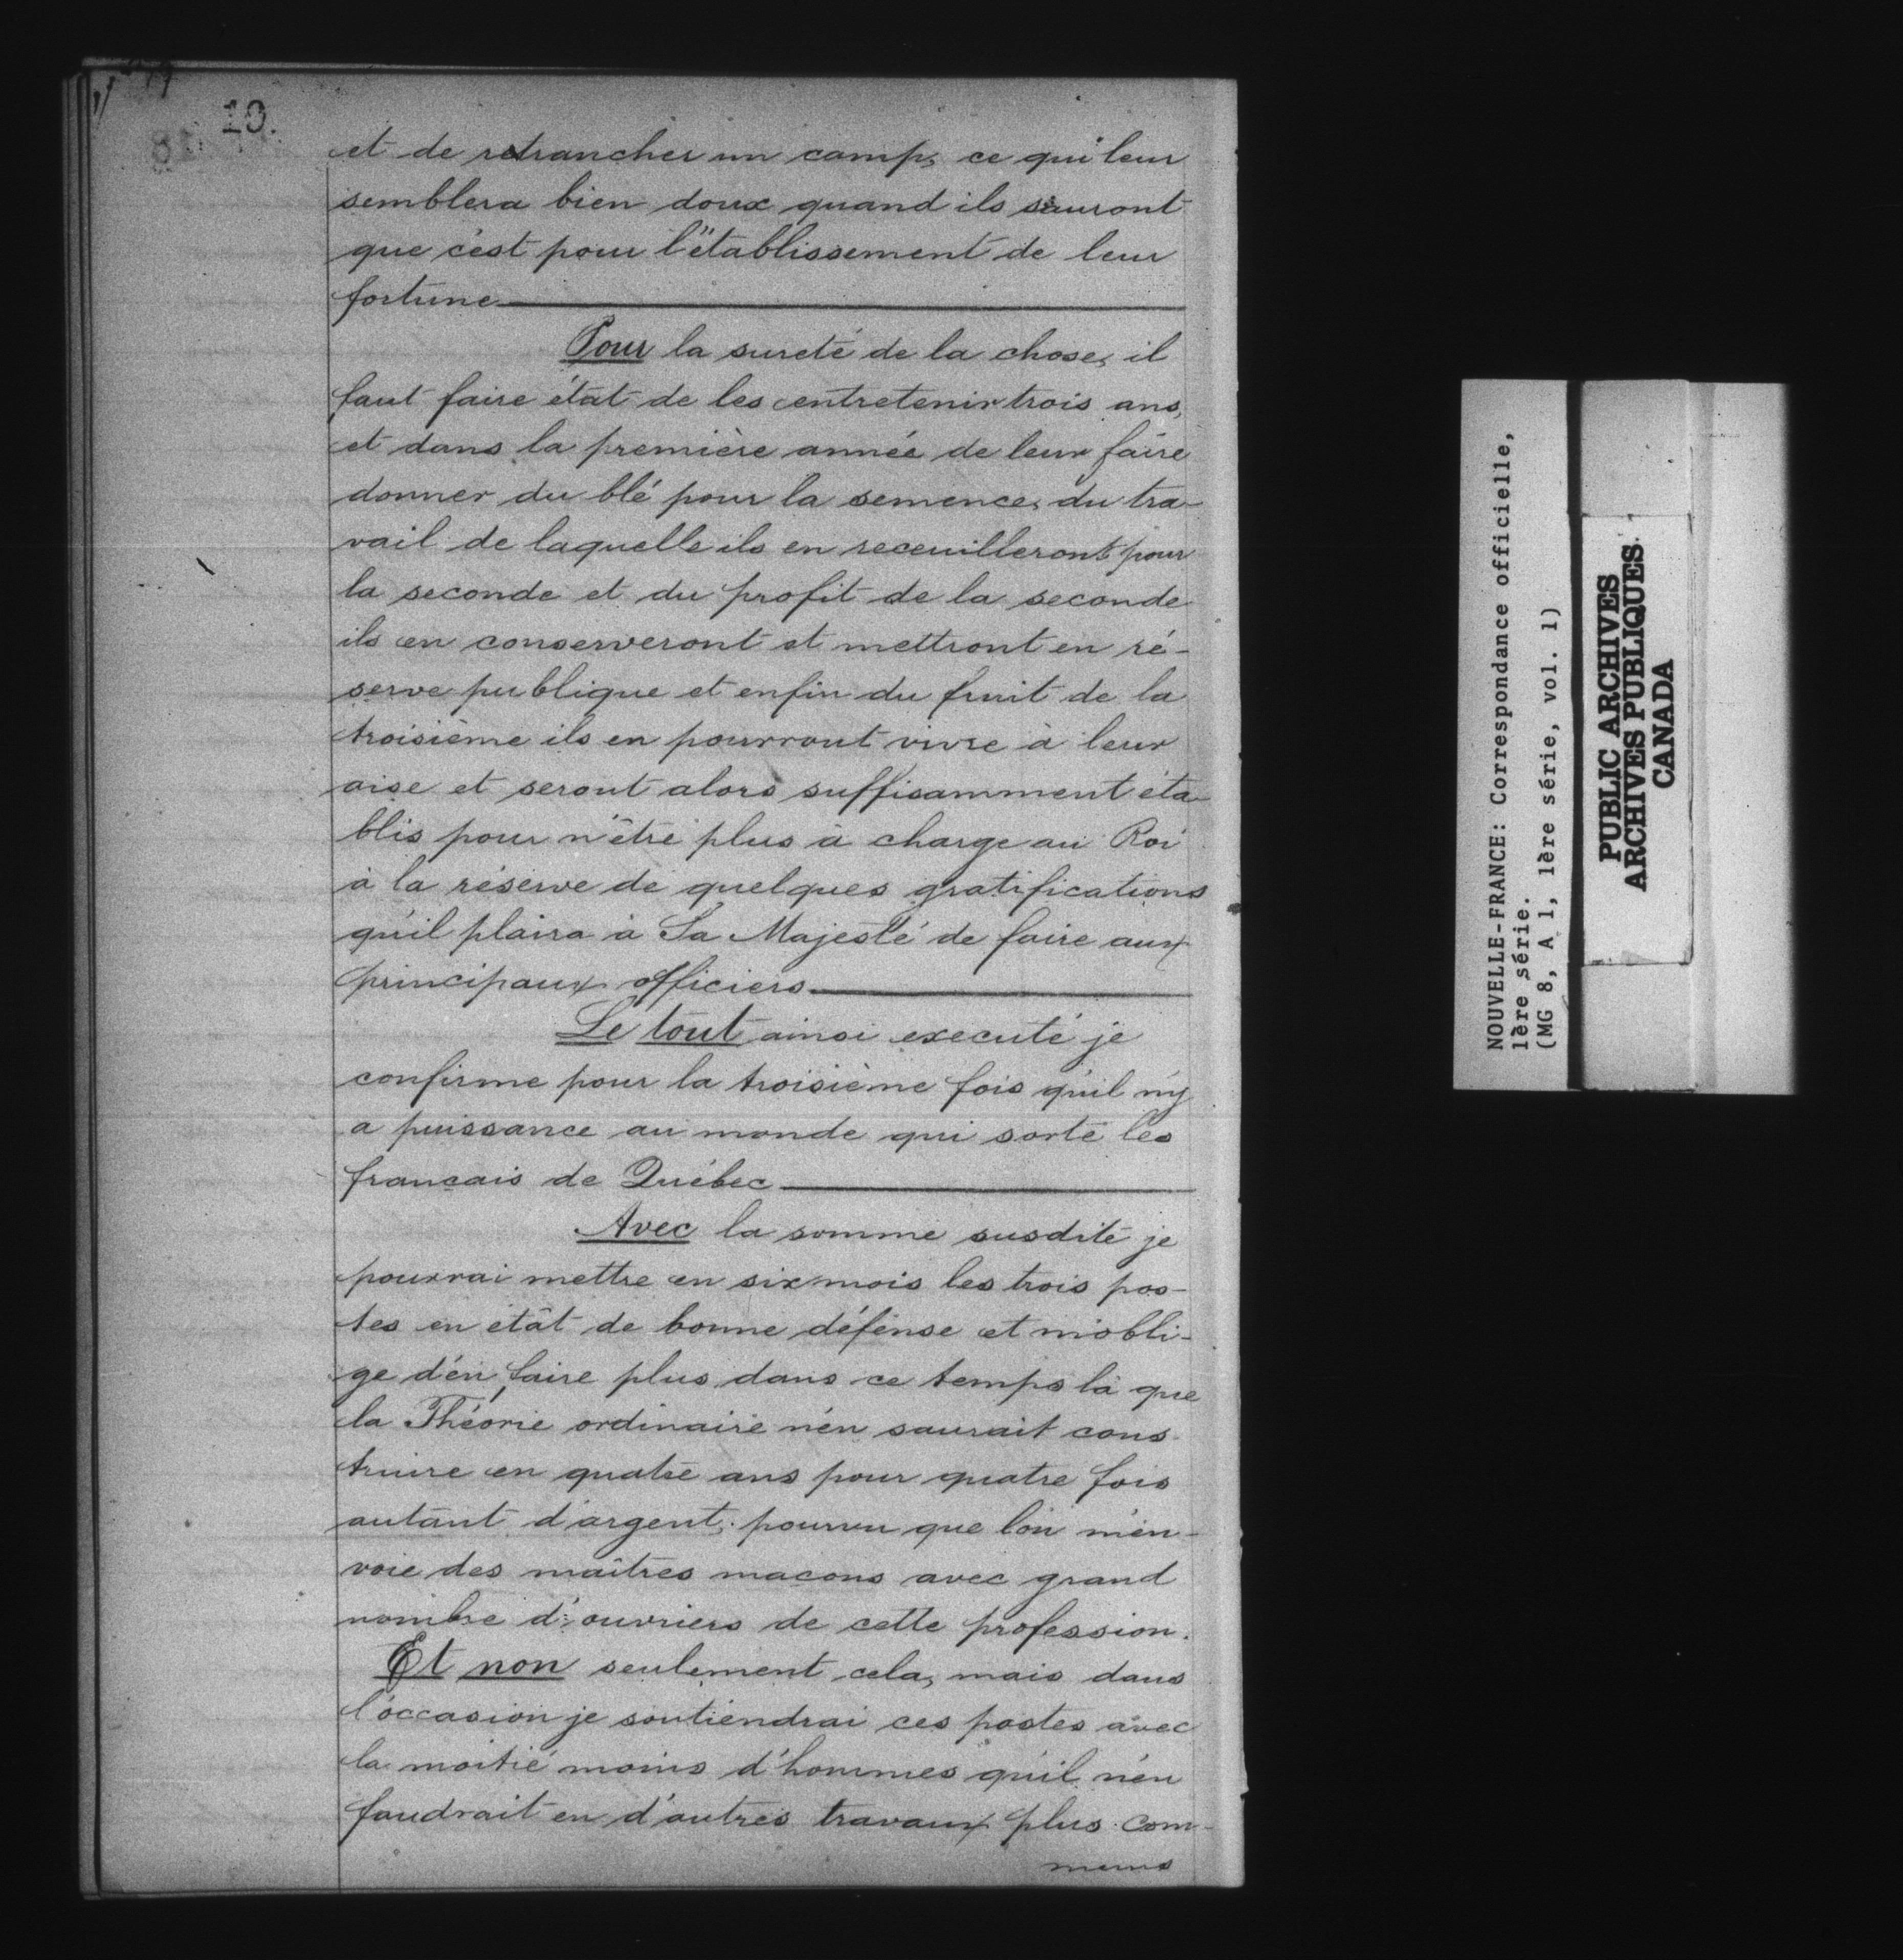 10.
et de retrancher un camp, ce qui leur
semblera bien doux quand ils sauront
que c'est pour l'établissement de leur
fortune
Pour la sureté de la chose, il
faut faire état de les entretenir trois ans,
et dans la première année de leur faire
donner du blé pour la semence, du tra-
vail de laquelle ils en receuilleront pour
la seconde et du profit de la seconde
ils en conserveront et mettront en ré-
serve publique et enfin du fruit de la
troisième ils en pourront vivre à leur
aise et seront alors suffisamment éta-
blis pour n'être plus à charge au Roi
à la réserve de quelques gratifications
qu'il plaira à Sa Majesté de faire aux
principaux officiers
Le tout ainsi executé je
confirme pour la troisième fois qu'il n'y
a puissance au monde qui sorte les
français de Québec
Avec la somme susdite je
pourrai mettre en six mois les trois pos-
tes en état de bonne défense et m'obli-
ge d'en faire plus dans ce temps là que
la Théorie ordinaire n'en saurait cons-
truire en quatre ans pour quatre fois
autant d'argent, pourvu que l'on m'en-
voie des maîtres macons avec grand
nombre d'ouvriers de cette profession.
Et non seulement cela, mais dans
l'occasion je soutiendrai ces postes avec
la moitié moins d'hommes qu'il n'en
faudrait en d'autres travaux plus com-
muns
NOUVELLE-FRANCE: Correspondance officielle,
1ère série.
(MG 8, A 1, 1ère série, vol. 1)
PUBLIC ARCHIVES
ARCHIVES PUBLIQUES
CANADA